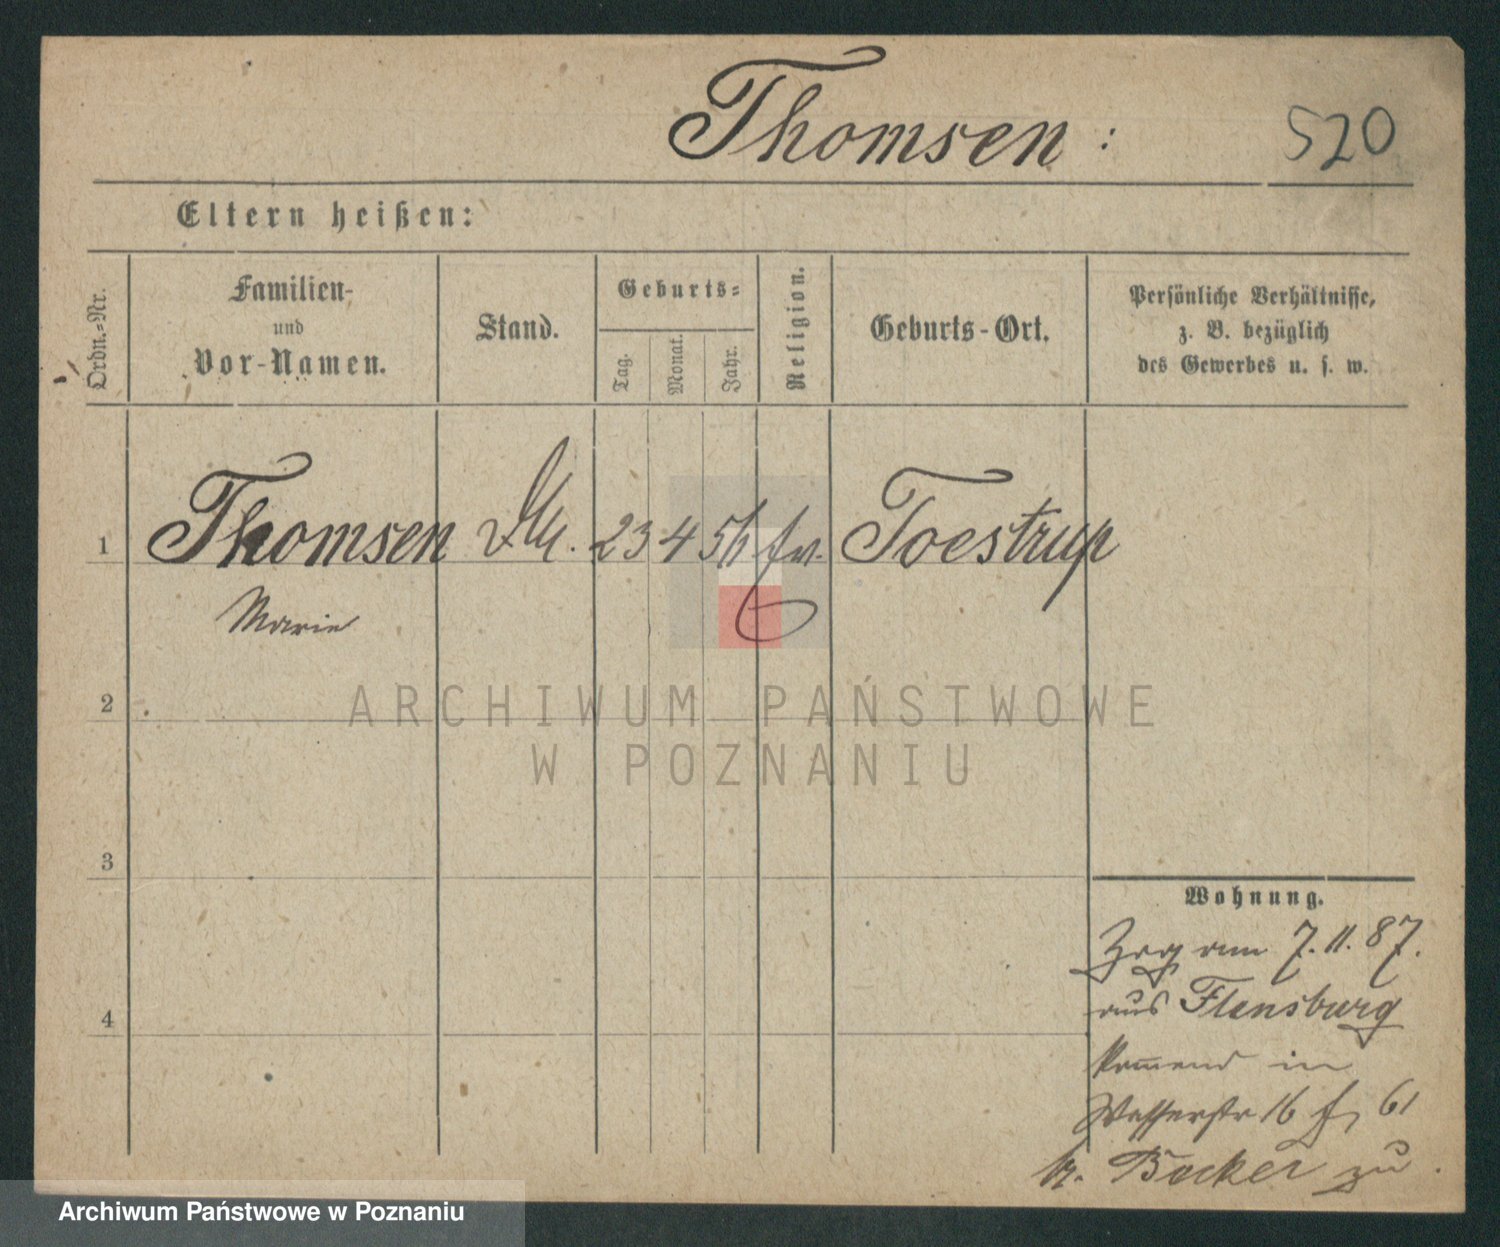 Thomsen: 520
Eltern heißen:
Ordn.-Nr.
Familien-
und
Vor-Namen.
Stand.
Geburts-
Tag.
Monat.
Jahr.
Religion.
Geburts-Ort.
Persönliche Verhältnisse,
z. B. bezüglich
des Gewerbes u. s. w.
1 Thomsen 23 4 56 ev. Toestrup
Marie
2
3
4
Wohnung.
Zog am 7.11.87.
aus Flensburg
komend in
Wasserstr 16 61
b. Backer zu.
ARCHIWUM PAŃSTWOWE
W POZNANIU
Archiwum Państwowe w Poznaniu